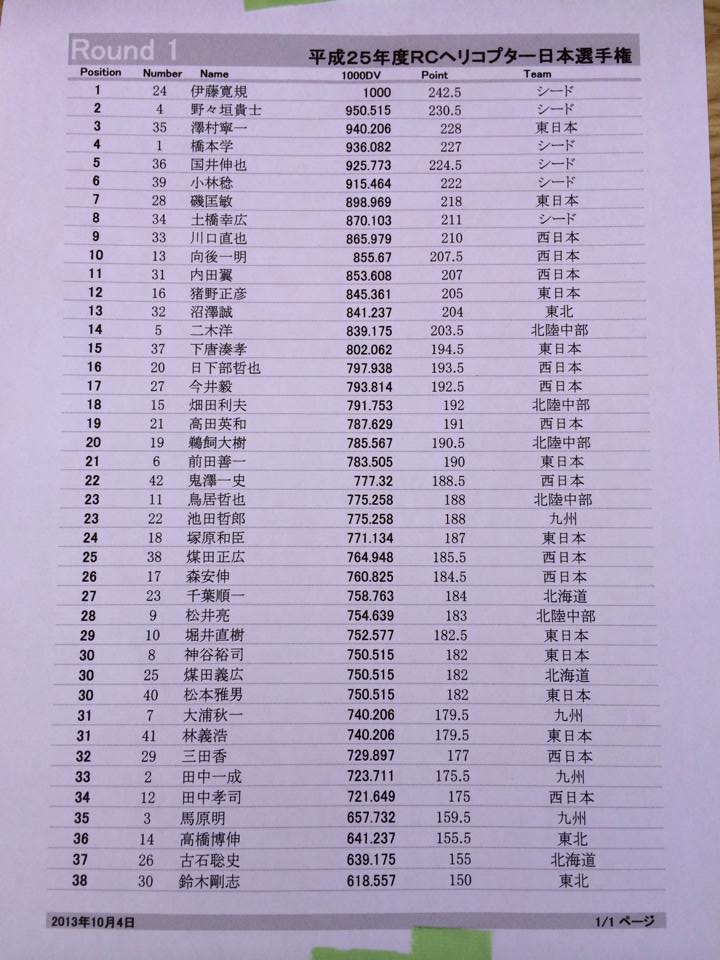 Round 1
平成25年度RCヘリコプター日本選手権
Position Number Name 1000DV Point Team
1 24 伊藤寛規 1000 242.5 シード
2 4 野々垣貴士 950.515 230.5 シード
3 35 澤村寧一 940.206 228 東日本
4 1 橋本学 936.082 227 シード
5 36 国井伸也 925.773 224.5 シード
6 39 小林稔 915.464 222 シード
7 28 磯匡敏 898.969 218 東日本
8 34 土橋幸広 870.103 211 シード
9 33 川口直也 865.979 210 西日本
10 13 向後一明 855.67 207.5 西日本
11 31 内田翼 853.608 207 西日本
12 16 猪野正彦 845.361 205 東日本
13 32 沼澤誠 841.237 204 東北
14 5 二木洋 839.175 203.5 北陸中部
15 37 下唐湊孝 802.062 194.5 東日本
16 20 日下部哲也 797.938 193.5 西日本
17 27 今井毅 793.814 192.5 西日本
18 15 畑田利夫 791.753 192 北陸中部
19 21 高田英和 787.629 191 西日本
20 19 鵜飼大樹 785.567 190.5 北陸中部
21 6 前田善一 783.505 190 東日本
22 42 鬼澤一史 777.32 188.5 西日本
23 11 鳥居哲也 775.258 188 北陸中部
23 22 池田哲郎 775.258 188 九州
24 18 塚原和臣 771.134 187 東日本
25 38 煤田正広 764.948 185.5 西日本
26 17 森安伸 760.825 184.5 西日本
27 23 千葉順一 758.763 184 北海道
28 9 松井亮 754.639 183 北陸中部
29 10 堀井直樹 752.577 182.5 東日本
30 8 神谷裕司 750.515 182 東日本
30 25 煤田義広 750.515 182 北海道
30 40 松本雅男 750.515 182 東日本
31 7 大浦秋一 740.206 179.5 九州
31 41 林義浩 740.206 179.5 東日本
32 29 三田香 729.897 177 西日本
33 2 田中一成 723.711 175.5 九州
34 12 田中孝司 721.649 175 西日本
35 3 馬原明 657.732 159.5 九州
36 14 高橋博伸 641.237 155.5 東北
37 26 古石聡史 639.175 155 北海道
38 30 鈴木剛志 618.557 150 東北
2013年10月4日 1/1 ページ